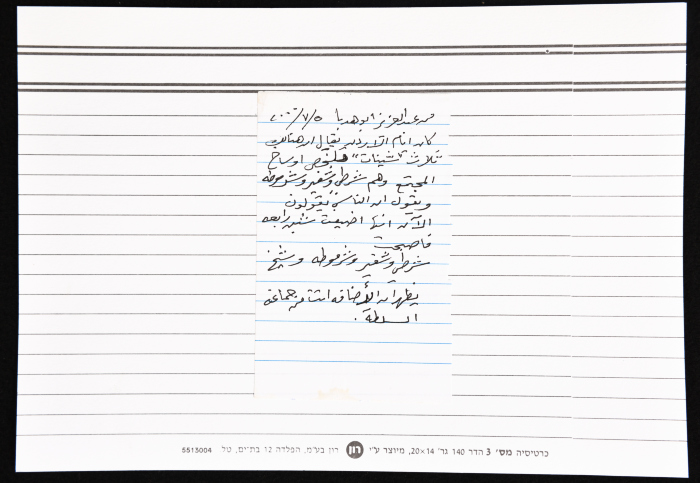 من عبد العزيز ابو هدبا ٢٠٠٢/٧/٥
كان ايام الاردن يقال ان هناك
ثلاث "شينات" تلخص اوساخ
المجتمع وهم شرطي وشفير وشرموطه
ويقول ان الناس يقولون
الآن انها اضيفت شين رابعه
فاصبحت
شرطي وشفير وشرموطه وشيخ
يظهر ان الأضافه اتت من جماعة
السلطة .
כרטיסיה מס' 3 הדר 140 גר' 14×20, מיוצר ע"י רון רון בע"מ, הפלדה 12 בת-ים, טל. 5513004